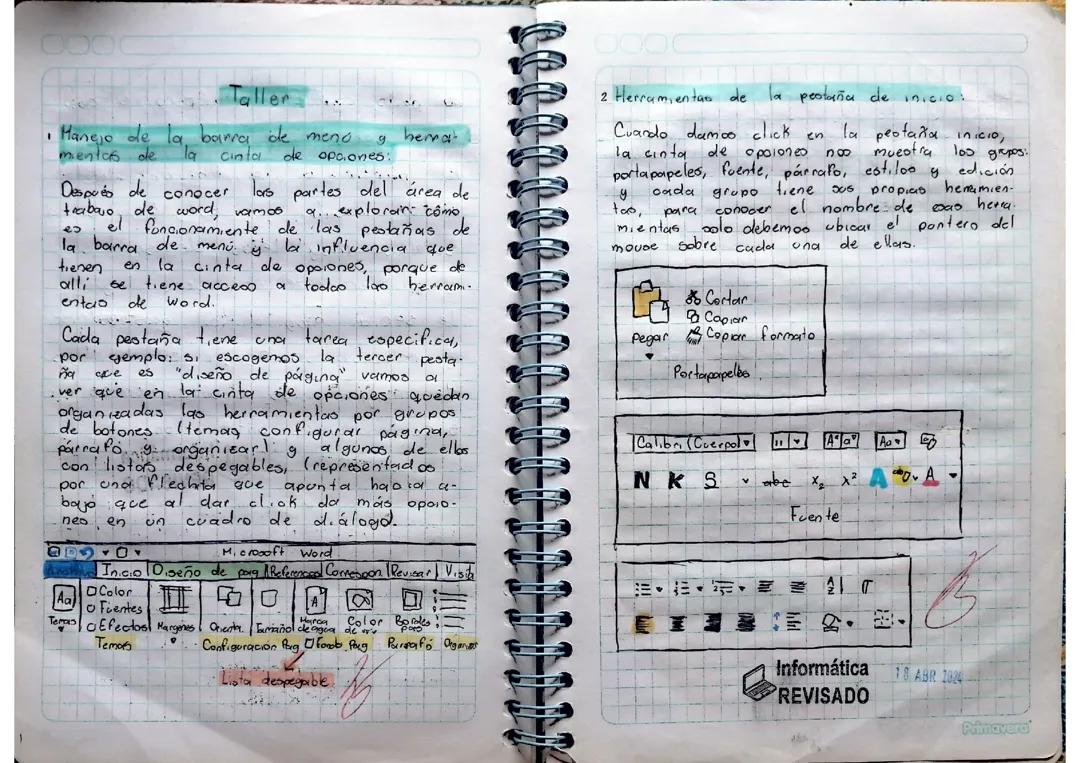 Taller
1 Manejo de la barra de menú y herra-
mientas de la cinta de opciones:
Después de conocer las partes del área de
trabajo de word, vamos a explorar cómo
es el funcionamiento de las pestañas de
la barra de menú y la influencia que
tienen en la cinta de opciones, porque de
allí se tiene acceso a todas las herrami-
entas de Word.
Cada pestaña tiene una tarea específica,
por ejemplo: si escogemos la tercer pesta-
ña que es "diseño de página" vamos a
ver que en la cinta de opciones quedan
organizadas las herramientas por grupos
de botones (temas, configurar página,
párrafo y organizar) y algunos de ellos
con listas despegables, (representados
por una flechita que apunta hacia a-
bajo que al dar click da más opcio-
nes en un cuadro de diálogo.
Microsoft Word
Archivo Inicio Diseño de pag Referencias Correspon Revisar Vista
Aa Color
Fuentes
Efectos
Temas Margenes Orienta. Tamaño Marca de agua Color de Bordes
Temas Configuración Pag Fondo Pag Parrafó Organizar
Lista despegable
2 Herramientas de la pestaña de inicio:
Cuando damos click en la pestaña inicio,
la cinta de opciones nos muestra los grupos:
portapapeles, fuente, párrafo, estilos y edición
y cada grupo tiene sus propias herramien-
tas, para conocer el nombre de esas herra-
mientas solo debemos ubicar el puntero del
mouse sobre cada una de ellas.
Cortar
Copiar
pegar Copiar formato
Portapapeles
Calibri (Cuerpo) 11 A A Aa
N K S abc X₂ X² A A
Fuente
Informática
REVISADO
18 ABR 2024
Primavera